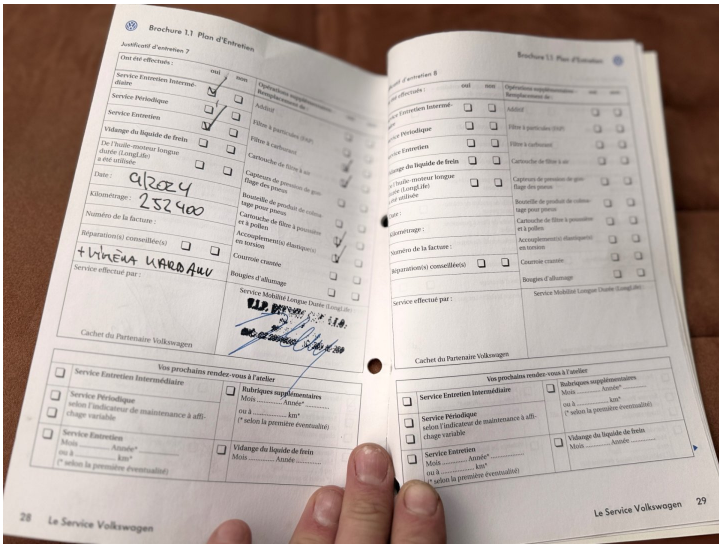 Brochure 1.1 Plan d'Entretien
Justificatif d'entretien 7
Ont été effectués :
oui
non
Service Entretien Intermé-
diaire
Service Périodique
Service Entretien
Vidange du liquide de frein
De l'huile-moteur longue
durée (LongLife)
a été utilisée
Date : 9/2024
Kilométrage : 252400
Numéro de la facture :
Réparation(s) conseillée(s)
Service effectué par :
Opérations supplémentaires
Remplacement de :
Additif
Filtre à particules (FAP)
Filtre à carburant
Cartouche de filtre à air
Capteurs de pression de gon-
flage des pneus
Bouteille de produit de colma-
tage pour pneus
Cartouche de filtre à poussière
et à pollen
Accouplement(s) élastique(s)
en torsion
Courroie crantée
Bougies d'allumage
Service Mobilité Longue Durée (LongLife) :
Cachet du Partenaire Volkswagen
Vos prochains rendez-vous à l'atelier
Service Entretien Intermédiaire
Service Périodique
selon l'indicateur de maintenance à affi-
chage variable
Service Entretien
Mois ............ Année*............
ou à ............ km*
(* selon la première éventualité)
Rubriques supplémentaires
Mois ............ Année*............
ou à ............ km*
(* selon la première éventualité)
Vidange du liquide de frein
Mois ............ Année ............
28 Le Service Volkswagen
Brochure 1.1 Plan d'Entretien
d'entretien 8
effectués :
oui
non
Entretien Intermé-
Périodique
Entretien
Vidange du liquide de frein
l'huile-moteur longue
(LongLife)
été utilisée
Kilométrage :
Numéro de la facture :
Réparation(s) conseillée(s)
Service effectué par :
Opérations supplémentaires
Remplacement de :
oui
non
Additif
Filtre à particules (FAP)
Filtre à carburant
Cartouche de filtre à air
Capteurs de pression de gon-
flage des pneus
Bouteille de produit de colma-
tage pour pneus
Cartouche de filtre à poussière
et à pollen
Accouplement(s) élastique(s)
en torsion
Courroie crantée
Bougies d'allumage
Service Mobilité Longue Durée (LongLife) :
Cachet du Partenaire Volkswagen
Vos prochains rendez-vous à l'atelier
Service Entretien Intermédiaire
Service Périodique
selon l'indicateur de maintenance à affi-
chage variable
Service Entretien
Mois ............ Année*............
ou à ............ km*
(* selon la première éventualité)
Rubriques supplémentaires
Mois ............ Année*............
ou à ............ km*
(* selon la première éventualité)
Vidange du liquide de frein
Mois ............ Année ............
Le Service Volkswagen 29